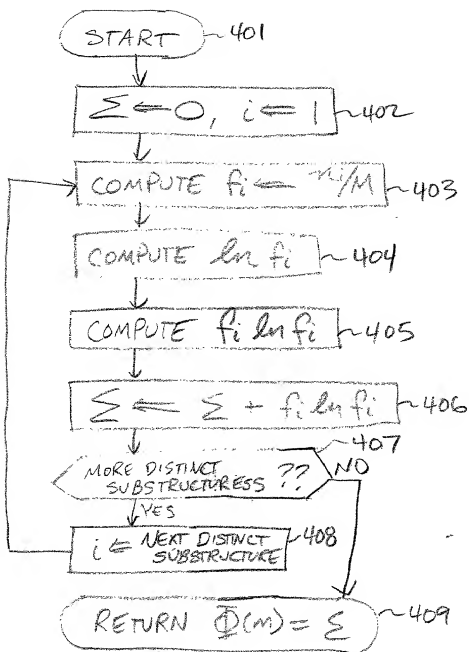 START ~401
Σ ⇐ 0, i ⇐ 1 ~402
COMPUTE fi ← ni/M ~403
COMPUTE ln fi ~404
COMPUTE fi ln fi ~405
Σ ⇐ Σ + fi ln fi ~406
~407
MORE DISTINCT
SUBSTRUCTURESS ?? NO
YES
i ⇐ NEXT DISTINCT ~408
SUBSTRUCTURE
RETURN Φ(m) = Σ ~409